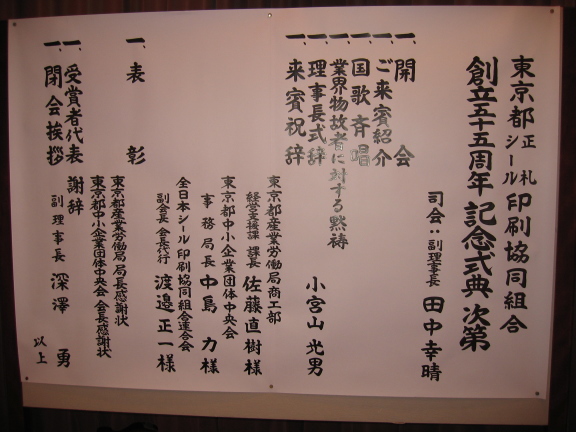 東京都正札シール印刷協同組合
創立五十五周年 記念式典 次第
司会:副理事長 田中幸晴
一、開会
一、ご来賓紹介
一、国歌斉唱
一、業界物故者に対する黙祷
一、理事長式辞 小宮山光男
一、来賓祝辞
東京都産業労働局商工部
経営支援課 課長 佐藤直樹様
東京都中小企業団体中央会
事務局長 中島力様
全日本シール印刷協同組合連合会
副会長 会長代行 渡邉正一様
一、表彰
東京都産業労働局 局長感謝状
東京都中小企業団体中央会 会長感謝状
一、受賞者代表 謝辞
一、閉会挨拶 副理事長 深澤勇
以上